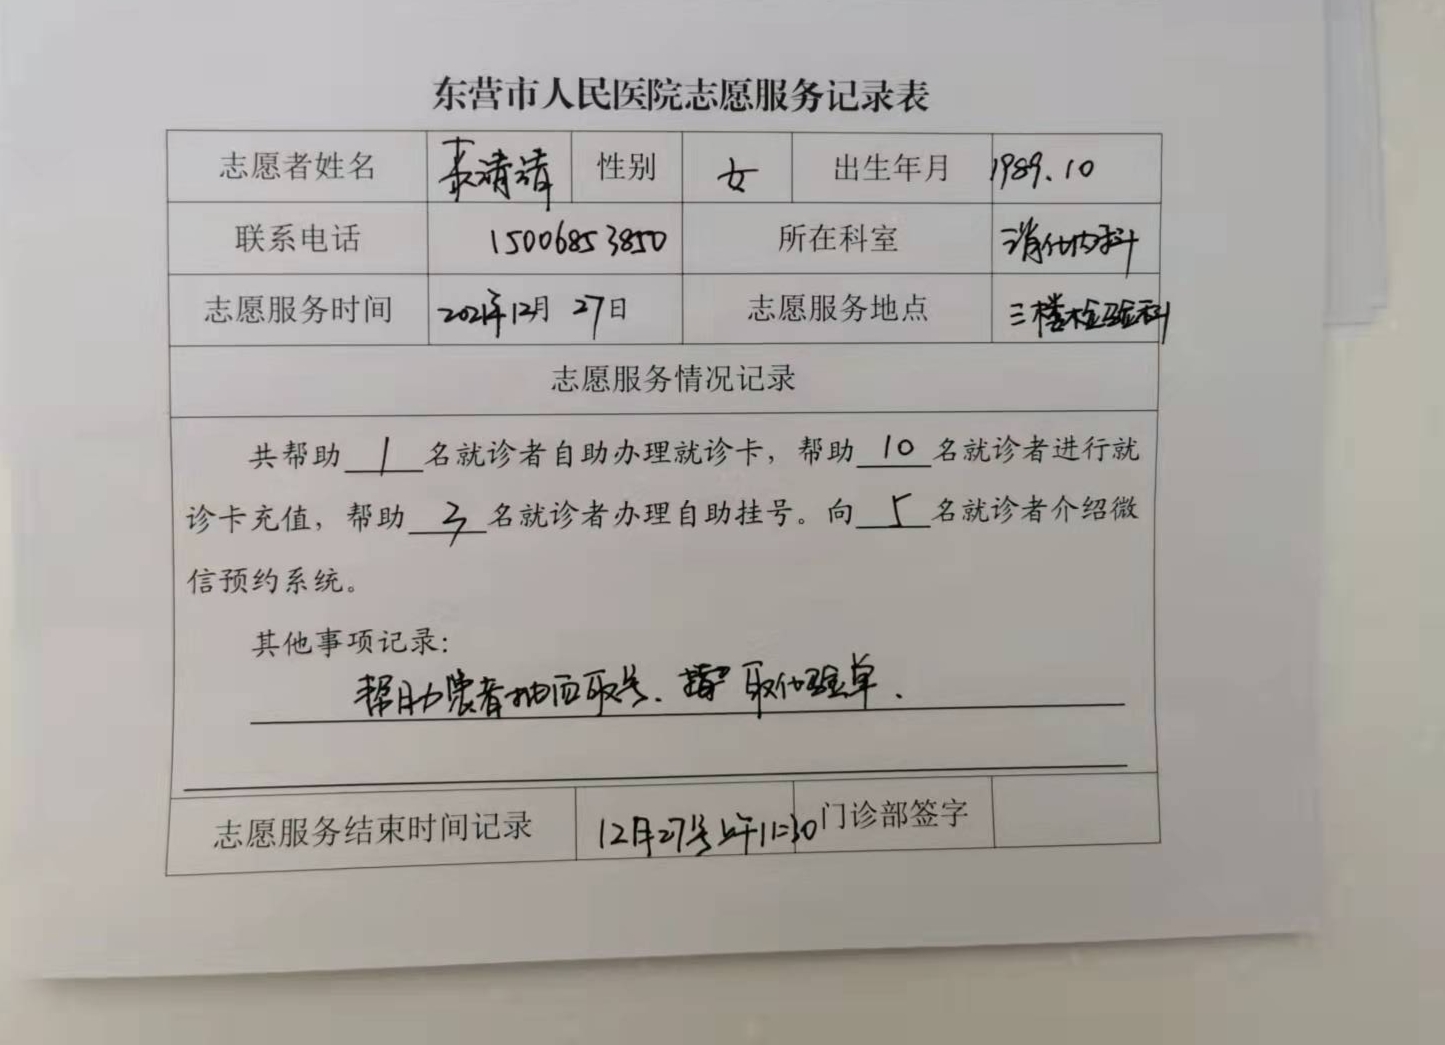 东营市人民医院志愿服务记录表
志愿者姓名 袁清清 性别 女 出生年月 1989.10
联系电话 15006853850 所在科室 消化内科
志愿服务时间 2021年12月 27日 志愿服务地点 三楼检验科
志愿服务情况记录
共帮助 1 名就诊者自助办理就诊卡，帮助 10 名就诊者进行就
诊卡充值，帮助 3 名就诊者办理自助挂号。向 5 名就诊者介绍微
信预约系统。
其他事项记录：
帮助患者抽血取号、 取化验单.
志愿服务结束时间记录 12月27号上午11:30 门诊部签字